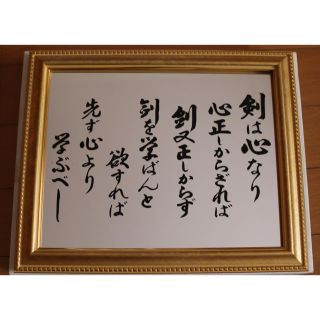 剣は心なり
心正しからざれば
剣又正しからず
剣を学ばんと
欲すれば
先ず心より
学ぶべし